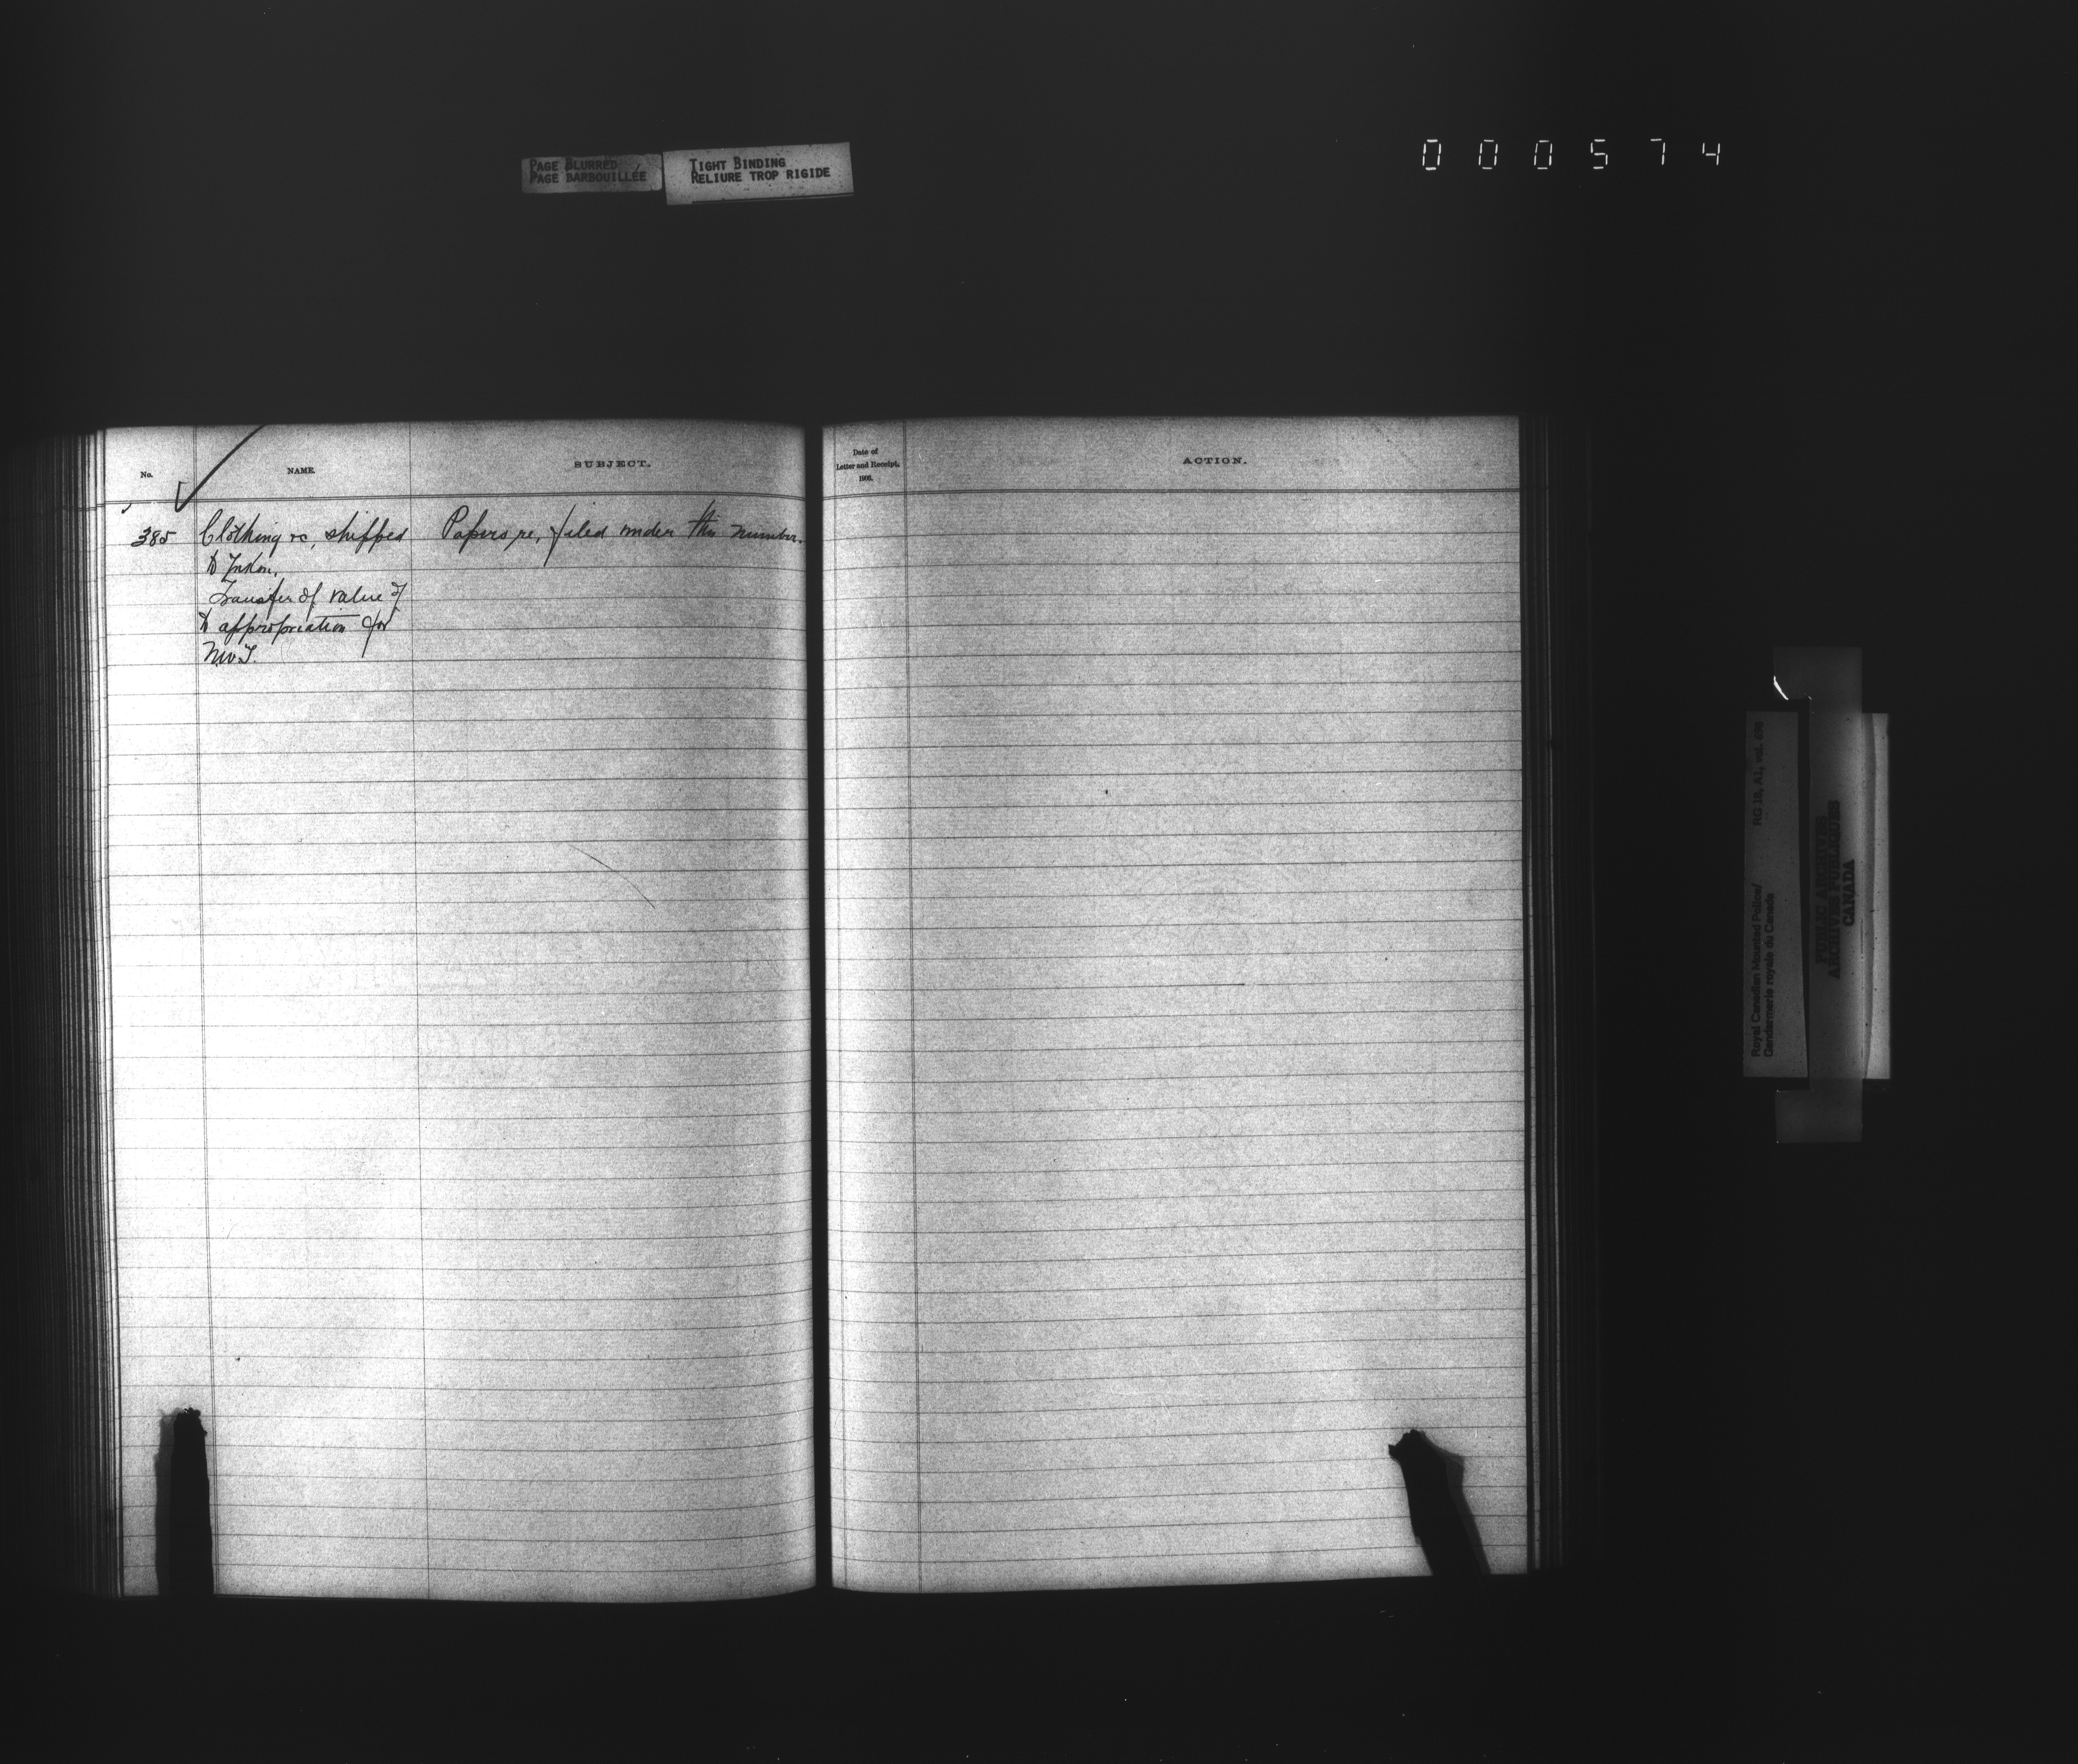 PAGE BLURRED
PAGE BARBOUILLÉE
TIGHT BINDING
RELIURE TROP RIGIDE
000574
No.
NAME.
SUBJECT.
Date of
Letter and Receipt,
1906.
ACTION.
385 Clothing &c, shipped Papers re, filed under this number.
to Yukon.
Transfer of value of
to appropriation for
N.W.T.
Royal Canadian Mounted Police/
Gendarmerie royale du Canada
RG 18, A1, vol.
PUBLIC ARCHIVES
ARCHIVES PUBLIQUES
CANADA